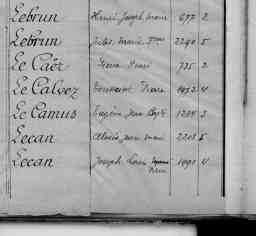 Lebrun Henri Joseph Marie 677 2
Lebrun Jules Marie 2290 5
Le Caër Pierre 735 2
Le Calvez Toussaint Pierre 4
Le Camus Eugène Jean 1208 3
Lecan Alexis Jean Marie 2208 5
Lecan Joseph Louis 1890 4